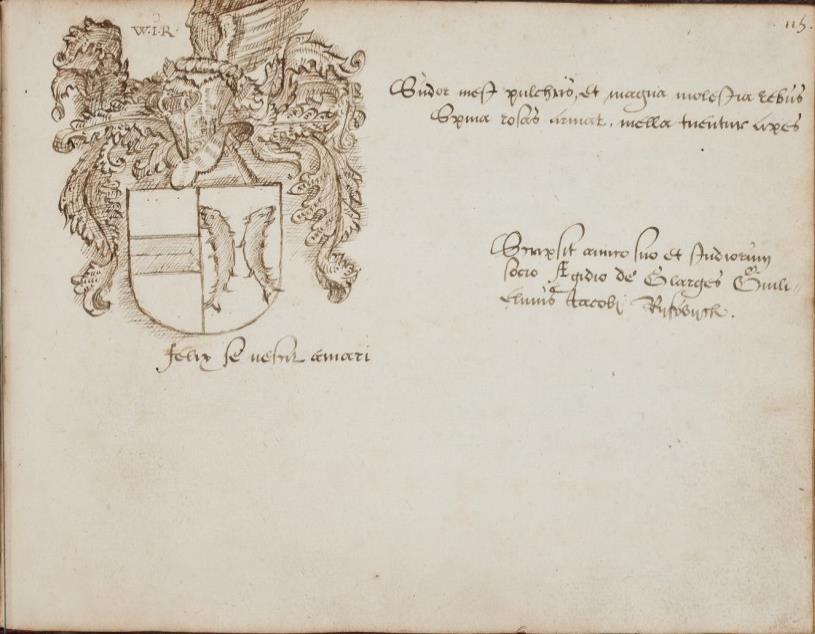 115.
W.I.R
Sudor inest pulchris, et magna molestia rebus
Spina rosas armat, mella tuentur apes
Scripsit amico suo et studiorum
socio Ægidio de Glarges Guili-
elmus Jacobi Ryswyck.
felix se nescit amari